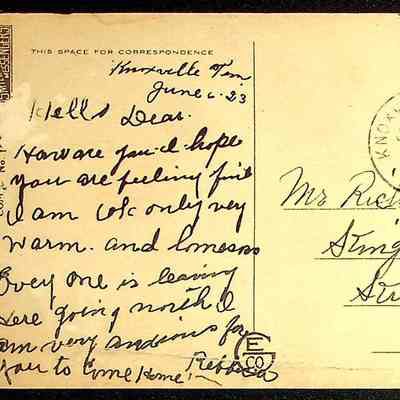 THIS SPACE FOR CORRESPONDENCE
Knoxville Tin
June 6-23
Hello Dear.
How are you-I hope
you are feeling fine
I am ok only very
warm. and lonesom
Every one is leaving
here going north I
am very anxious for
you to Come Home!
Rebecca
E
CO
KNOX
Mr Rich
King
Str